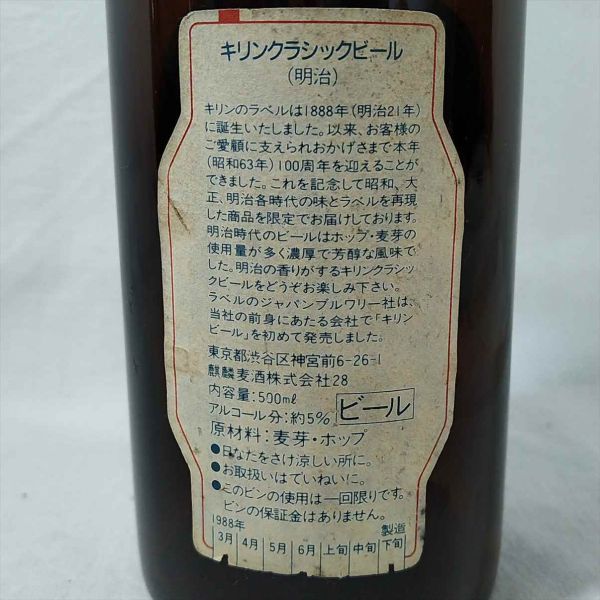 キリンクラシックビール
(明治)
キリンのラベルは1888年(明治21年)
に誕生いたしました。以来、お客様の
ご愛顧に支えられおかげさまで本年
(昭和63年)100周年を迎えることが
できました。これを記念して昭和、大
正、明治各時代の味とラベルを再現
した商品を限定でお届けしております。
明治時代のビールはホップ・麦芽の
使用量が多く濃厚で芳醇な風味で
した。明治の香りがするキリンクラシッ
クビールをどうぞお楽しみ下さい。
ラベルのジャパンブルワリー社は、
当社の前身にあたる会社で「キリン
ビール」を初めて発売しました。
東京都渋谷区神宮前6-26-1
麒麟麦酒株式会社28
内容量:500ml
アルコール分:約5% ビール
原材料:麦芽・ホップ
●日なたをさけ涼しい所に。
●お取扱いはていねいに。
●このビンの使用は一回限りです。
ビンの保証金はありません。
1988年 製造
3月 4月 5月 6月 上旬 中旬 下旬